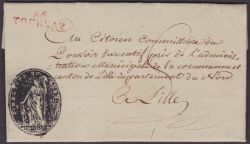 86
TOURNAY
Au Citoyen Commissaire du
Pouvoir Executif près de l'adminis
tration Municipale de la commune et
canton de Lille département du Nord
A Lille